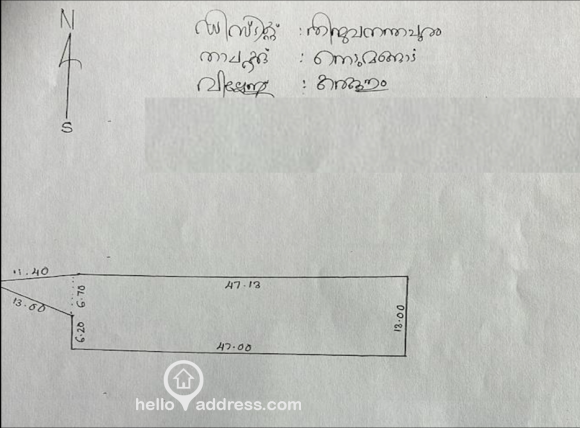 N
S
ഡിസ്ട്രിക്ട് : തിരുവനന്തപുരം
താലൂക്ക് : നെടുമങ്ങാട്
വില്ലേജ് :
11.40
13.00
6.70
6.20
47.13
13.00
47.00
hello address.com